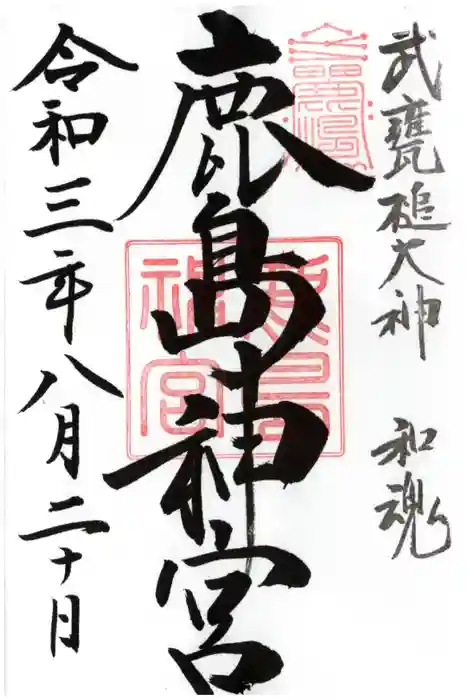 武甕槌大神 和魂
鹿島神宮
令和三年八月二十日
鹿島神宮